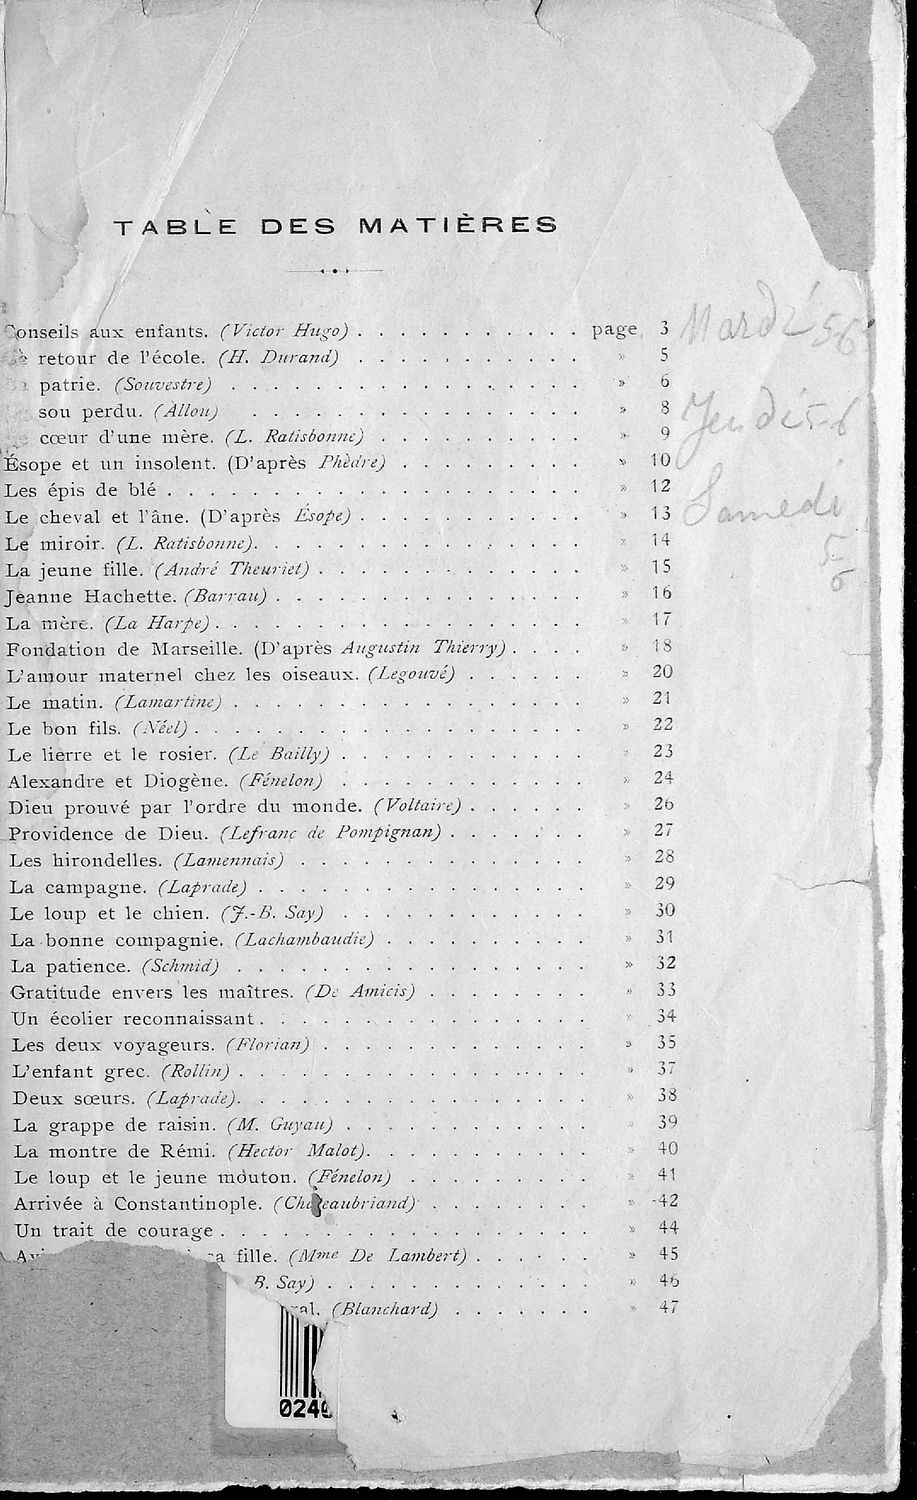 TABLE DES MATIÈRES
Conseils aux enfants. (Victor Hugo) . . . . . . . . . . . page 3 Mardi 5-6
retour de l'école. (H. Durand) . . . . . . . . . . . » 5
patrie. (Souvestre) . . . . . . . . . . . . . . . . . » 6
sou perdu. (Allou) . . . . . . . . . . . . . . . . » 8 Jeudi 5-6
cœur d'une mère. (L. Ratisbonne) . . . . . . . . . . » 9
Ésope et un insolent. (D'après Phèdre) . . . . . . . . . » 10
Les épis de blé . . . . . . . . . . . . . . . . . . . . » 12
Le cheval et l'âne. (D'après Ésope) . . . . . . . . . . . » 13 Samedi
Le miroir. (L. Ratisbonne). . . . . . . . . . . . . . . . » 14 5-6
La jeune fille. (André Theuriet) . . . . . . . . . . . . . » 15
Jeanne Hachette. (Barrau) . . . . . . . . . . . . . . . » 16
La mère. (La Harpe) . . . . . . . . . . . . . . . . . . » 17
Fondation de Marseille. (D'après Augustin Thierry) . . . . » 18
L'amour maternel chez les oiseaux. (Legouvé) . . . . . . » 20
Le matin. (Lamartine) . . . . . . . . . . . . . . . . . » 21
Le bon fils. (Néel) . . . . . . . . . . . . . . . . . . . » 22
Le lierre et le rosier. (Le Bailly) . . . . . . . . . . . . » 23
Alexandre et Diogène. (Fénelon) . . . . . . . . . . . . » 24
Dieu prouvé par l'ordre du monde. (Voltaire) . . . . . . » 26
Providence de Dieu. (Lefranc de Pompignan) . . . . . . . » 27
Les hirondelles. (Lamennais) . . . . . . . . . . . . . . » 28
La campagne. (Laprade) . . . . . . . . . . . . . . . . » 29
Le loup et le chien. (J.-B. Say) . . . . . . . . . . . . » 30
La bonne compagnie. (Lachambaudie) . . . . . . . . . . » 31
La patience. (Schmid) . . . . . . . . . . . . . . . . . » 32
Gratitude envers les maîtres. (De Amicis) . . . . . . . . » 33
Un écolier reconnaissant . . . . . . . . . . . . . . . . » 34
Les deux voyageurs. (Florian) . . . . . . . . . . . . . » 35
L'enfant grec. (Rollin) . . . . . . . . . . . . . . . . . » 37
Deux sœurs. (Laprade). . . . . . . . . . . . . . . . . » 38
La grappe de raisin. (M. Guyau) . . . . . . . . . . . . » 39
La montre de Rémi. (Hector Malot). . . . . . . . . . . » 40
Le loup et le jeune mouton. (Fénelon) . . . . . . . . . » 41
Arrivée à Constantinople. (Chateaubriand) . . . . . . . . » 42
Un trait de courage . . . . . . . . . . . . . . . . . . » 44
fille. (Mme De Lambert) . . . . . . » 45
B. Say) . . . . . . . . . . . . . » 46
(Blanchard) . . . . . . . » 47